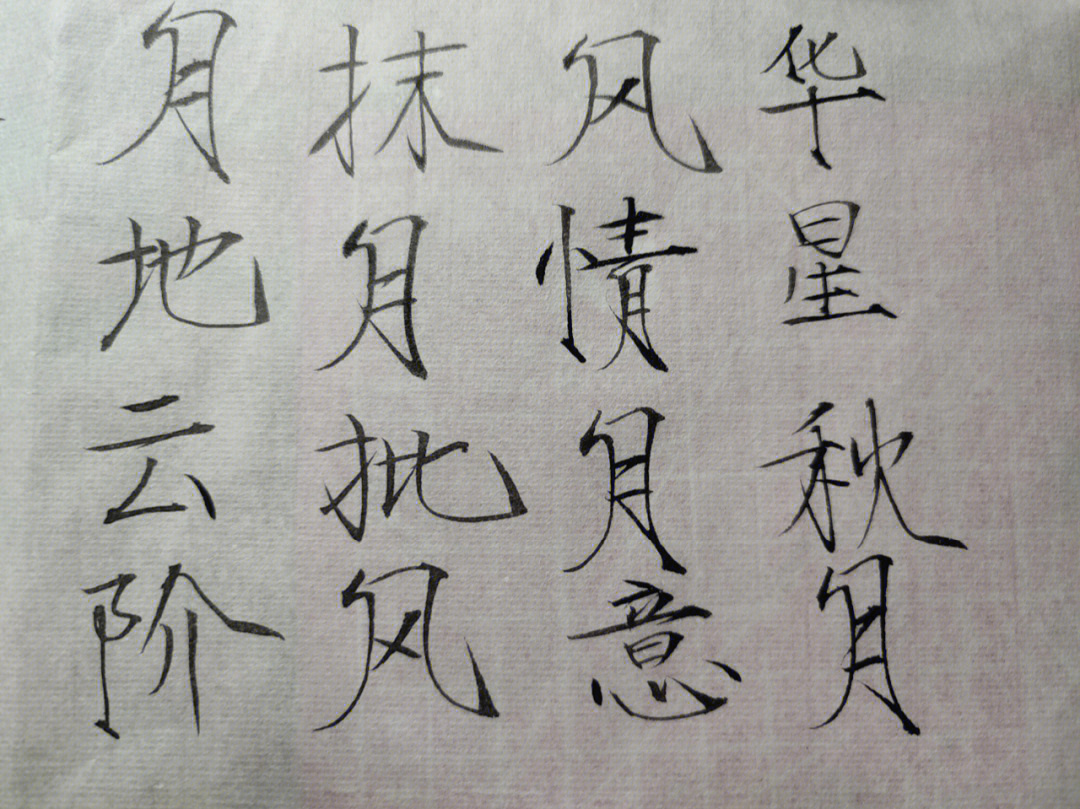 华星秋月
风情月意
抹月批风
月地云阶